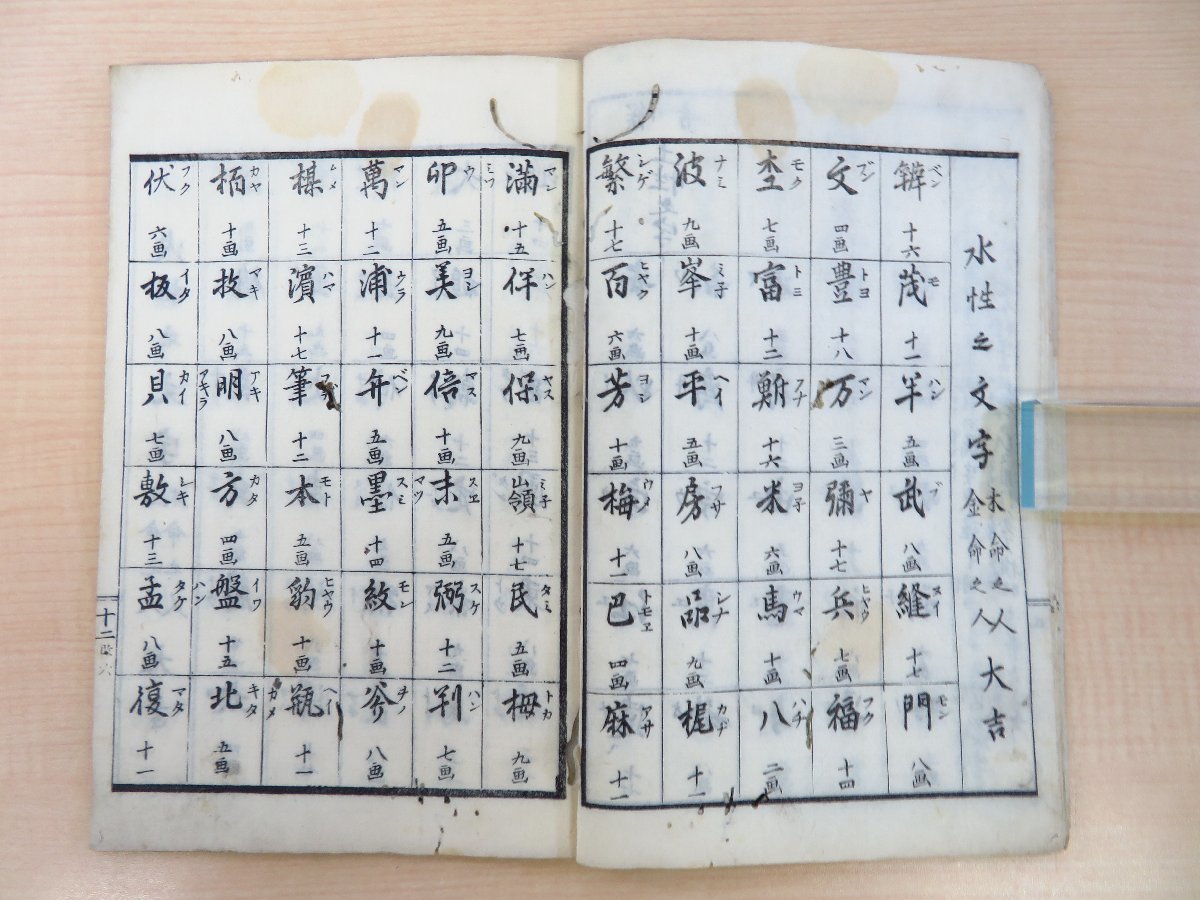 水性之文字 木命之人 金命之人 大吉
ベン 十六
茂 モ 十一
半 ハン 五画
武 ブ 八画
縫 ヌイ 十七
門 モン 八画
文 ブン 四画
豊 トヨ 十八
万 マン 三画
彌 ヤ 十七
兵 ヒヤウ 七画
福 フク 十四
モク 七画
富 トミ 十二
フナ 十六
米 ヨ子 六画
馬 ウマ 十画
八 ハチ 二画
波 ナミ 九画
峯 ミ子 十画
平 ヘイ 五画
房 フサ 八画
品 シナ 九画
梶 カヂ 十一
繁 シゲ 十七
百 ヒヤク 六画
芳 ヨシ 十画
梅 ウメ 十一
巴 トモヱ 四画
麻 アサ 十一
満 マン ミツ 十五
伴 ハン 七画
保 ヤス 九画
嶺 ミ子 十七
民 タミ 五画
栂 トガ 九画
卯 ウ 五画
美 ヨシ 九画
倍 マス 十画
末 スヱ マツ 五画
弼 スケ 十二
判 ハン 七画
萬 マン 十二
浦 ウラ 十一
弁 ベン 五画
墨 スミ 十四
紋 モン 十画
斧 ヲノ 八画
楳 ムメ 十三
濱 ハマ 十七
筆 十二
本 モト 五画
豹 ヒヤウ 十画
瓶 ヘイ カメ 十一
栢 カヤ 十画
枚 マキ 八画
明 アキ アキラ 八画
方 カタ 四画
盤 イワ ハン 十五
北 キタ 五画
伏 フク 六画
板 イタ 八画
貝 カイ 七画
敷 シキ 十三
孟 タケ 八画
復 マタ 十一
十二